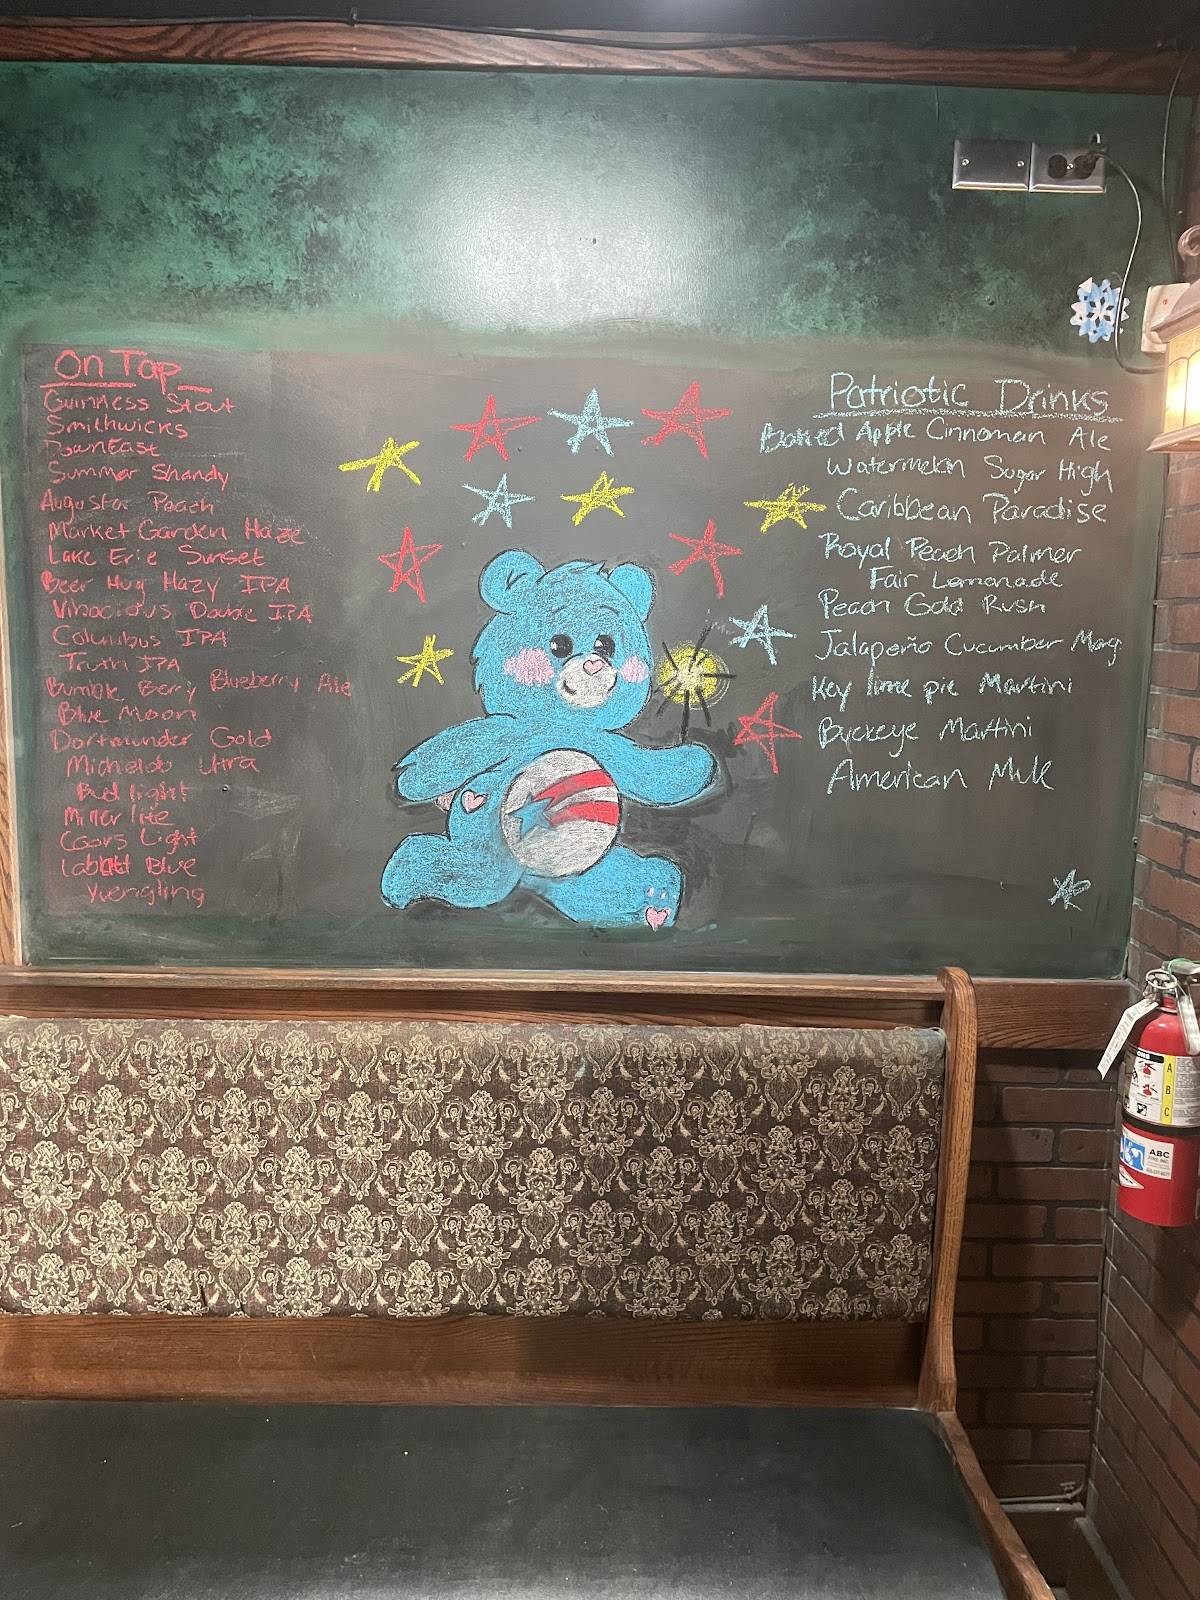 On Tap
Guinness Stout
Smithwicks
DownEast
Summer Shandy
Augusta Peach
Market Garden Haze
Lake Erie Sunset
Beer Hug Hazy IPA
Vibacious Double IPA
Columbus IPA
Truth IPA
Bumble Berry Blueberry Ale
Blue Moon
Dortmunder Gold
Michelob Ultra
Bud light
Miller lite
Coors Light
Labatt Blue
Yuengling
Patriotic Drinks
Apple Cinnoman Ale
Watermelon Sugar High
Caribbean Paradise
Royal Peach Palmer
Fair Lemonade
Peach Gold Rush
Jalapeño Cucumber Marg
Key lime pie Martini
Buckeye Martini
American Mule
A
B
C
ABC
FIRE INC.